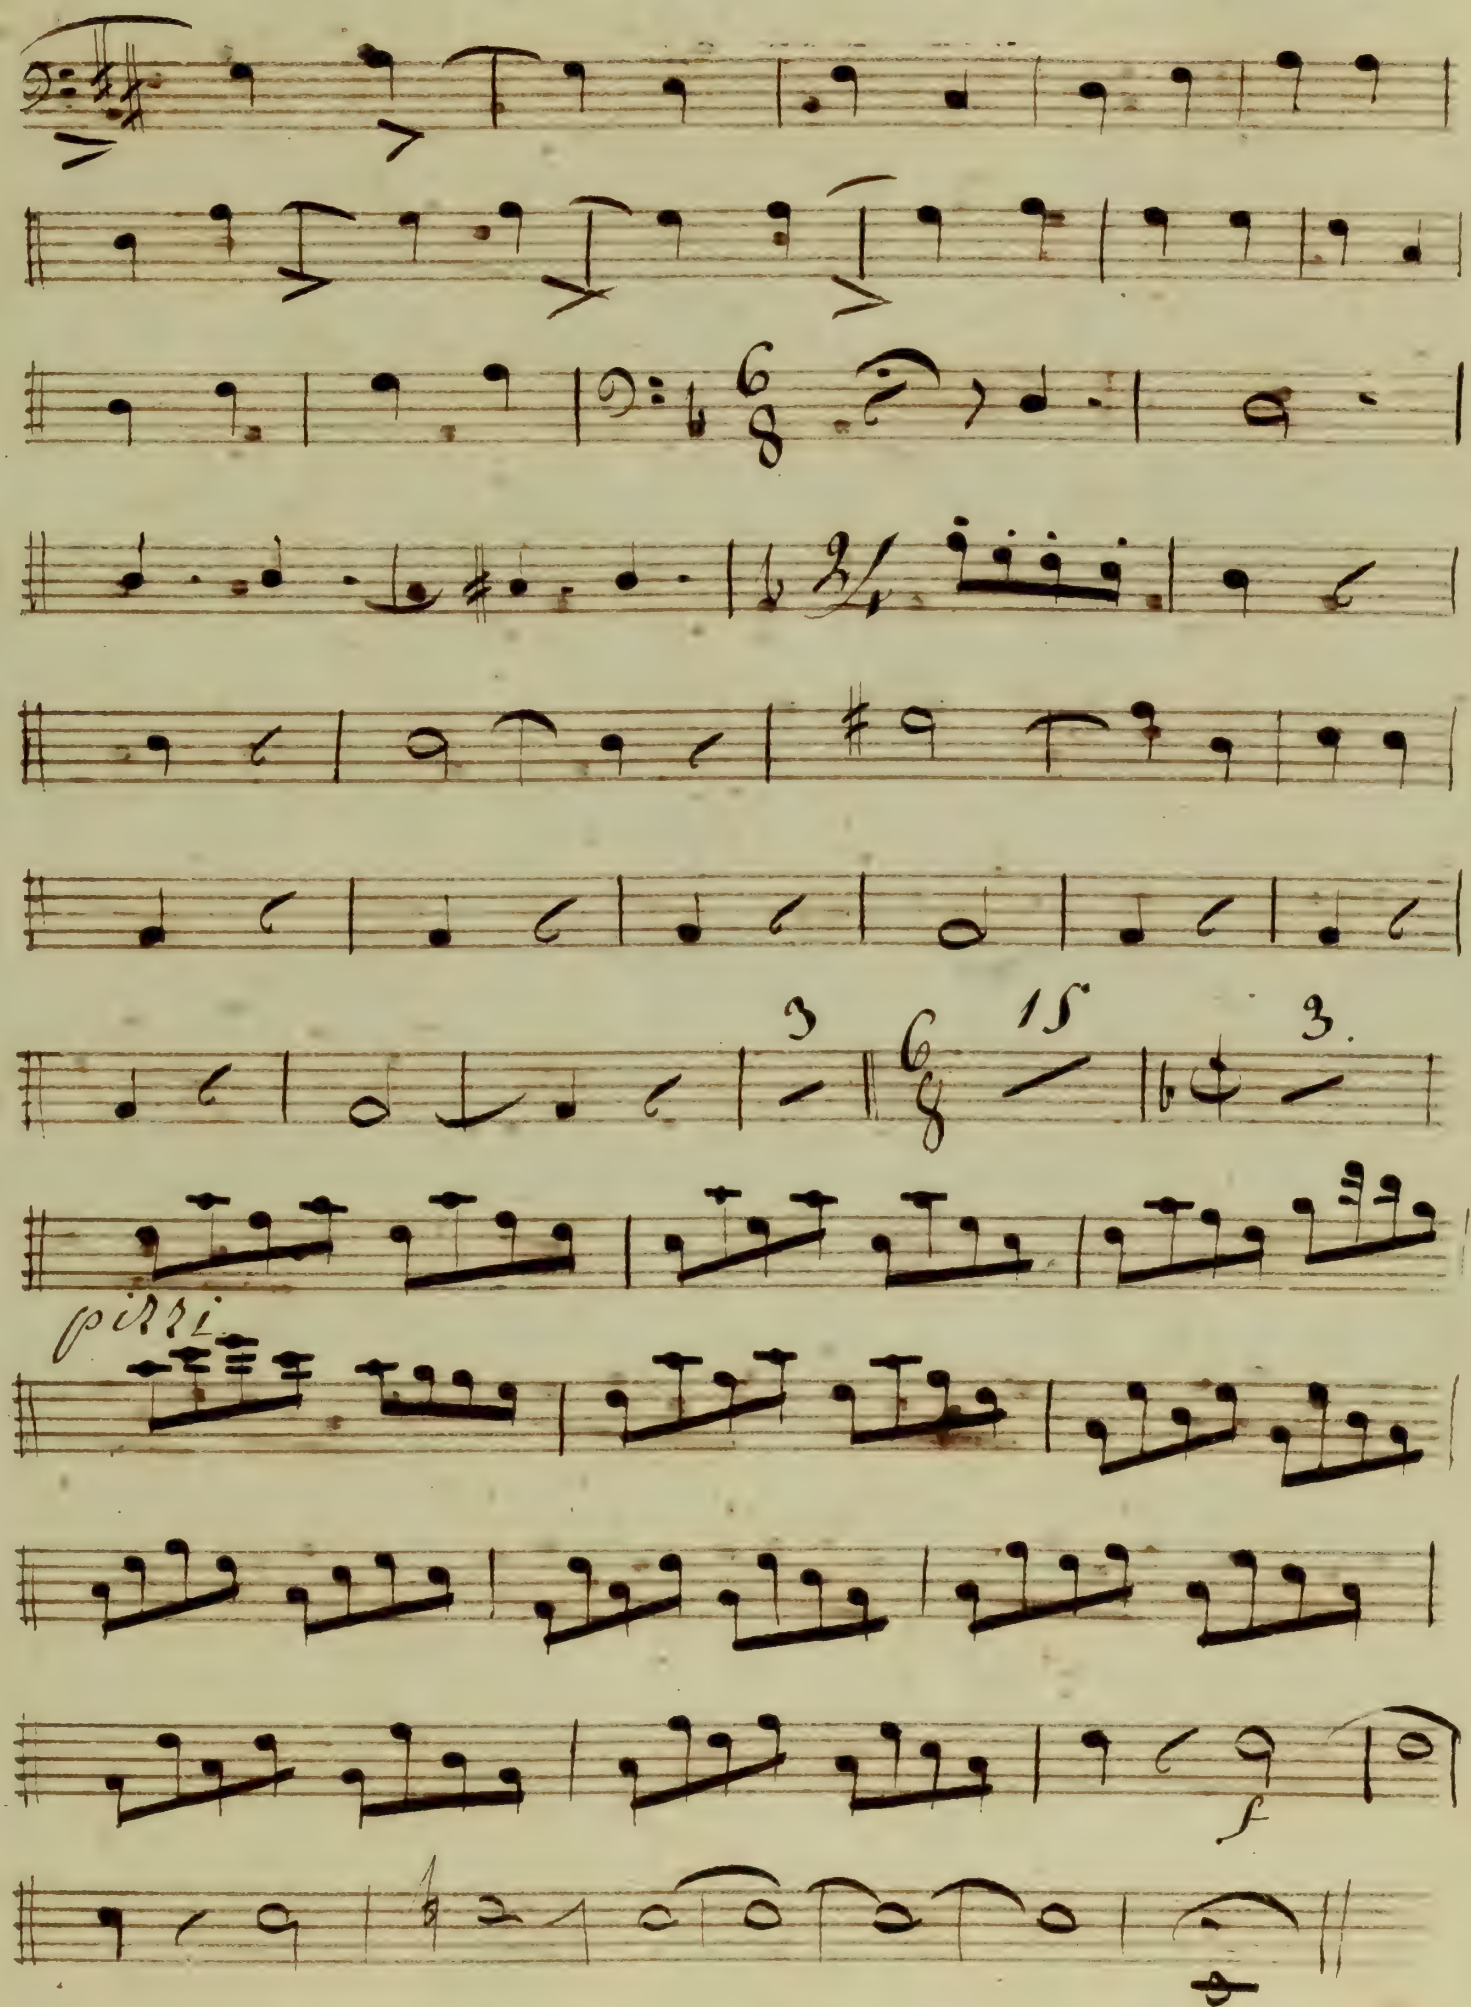 6
8
2/4
3 6 15 3.
8
pizzi
f